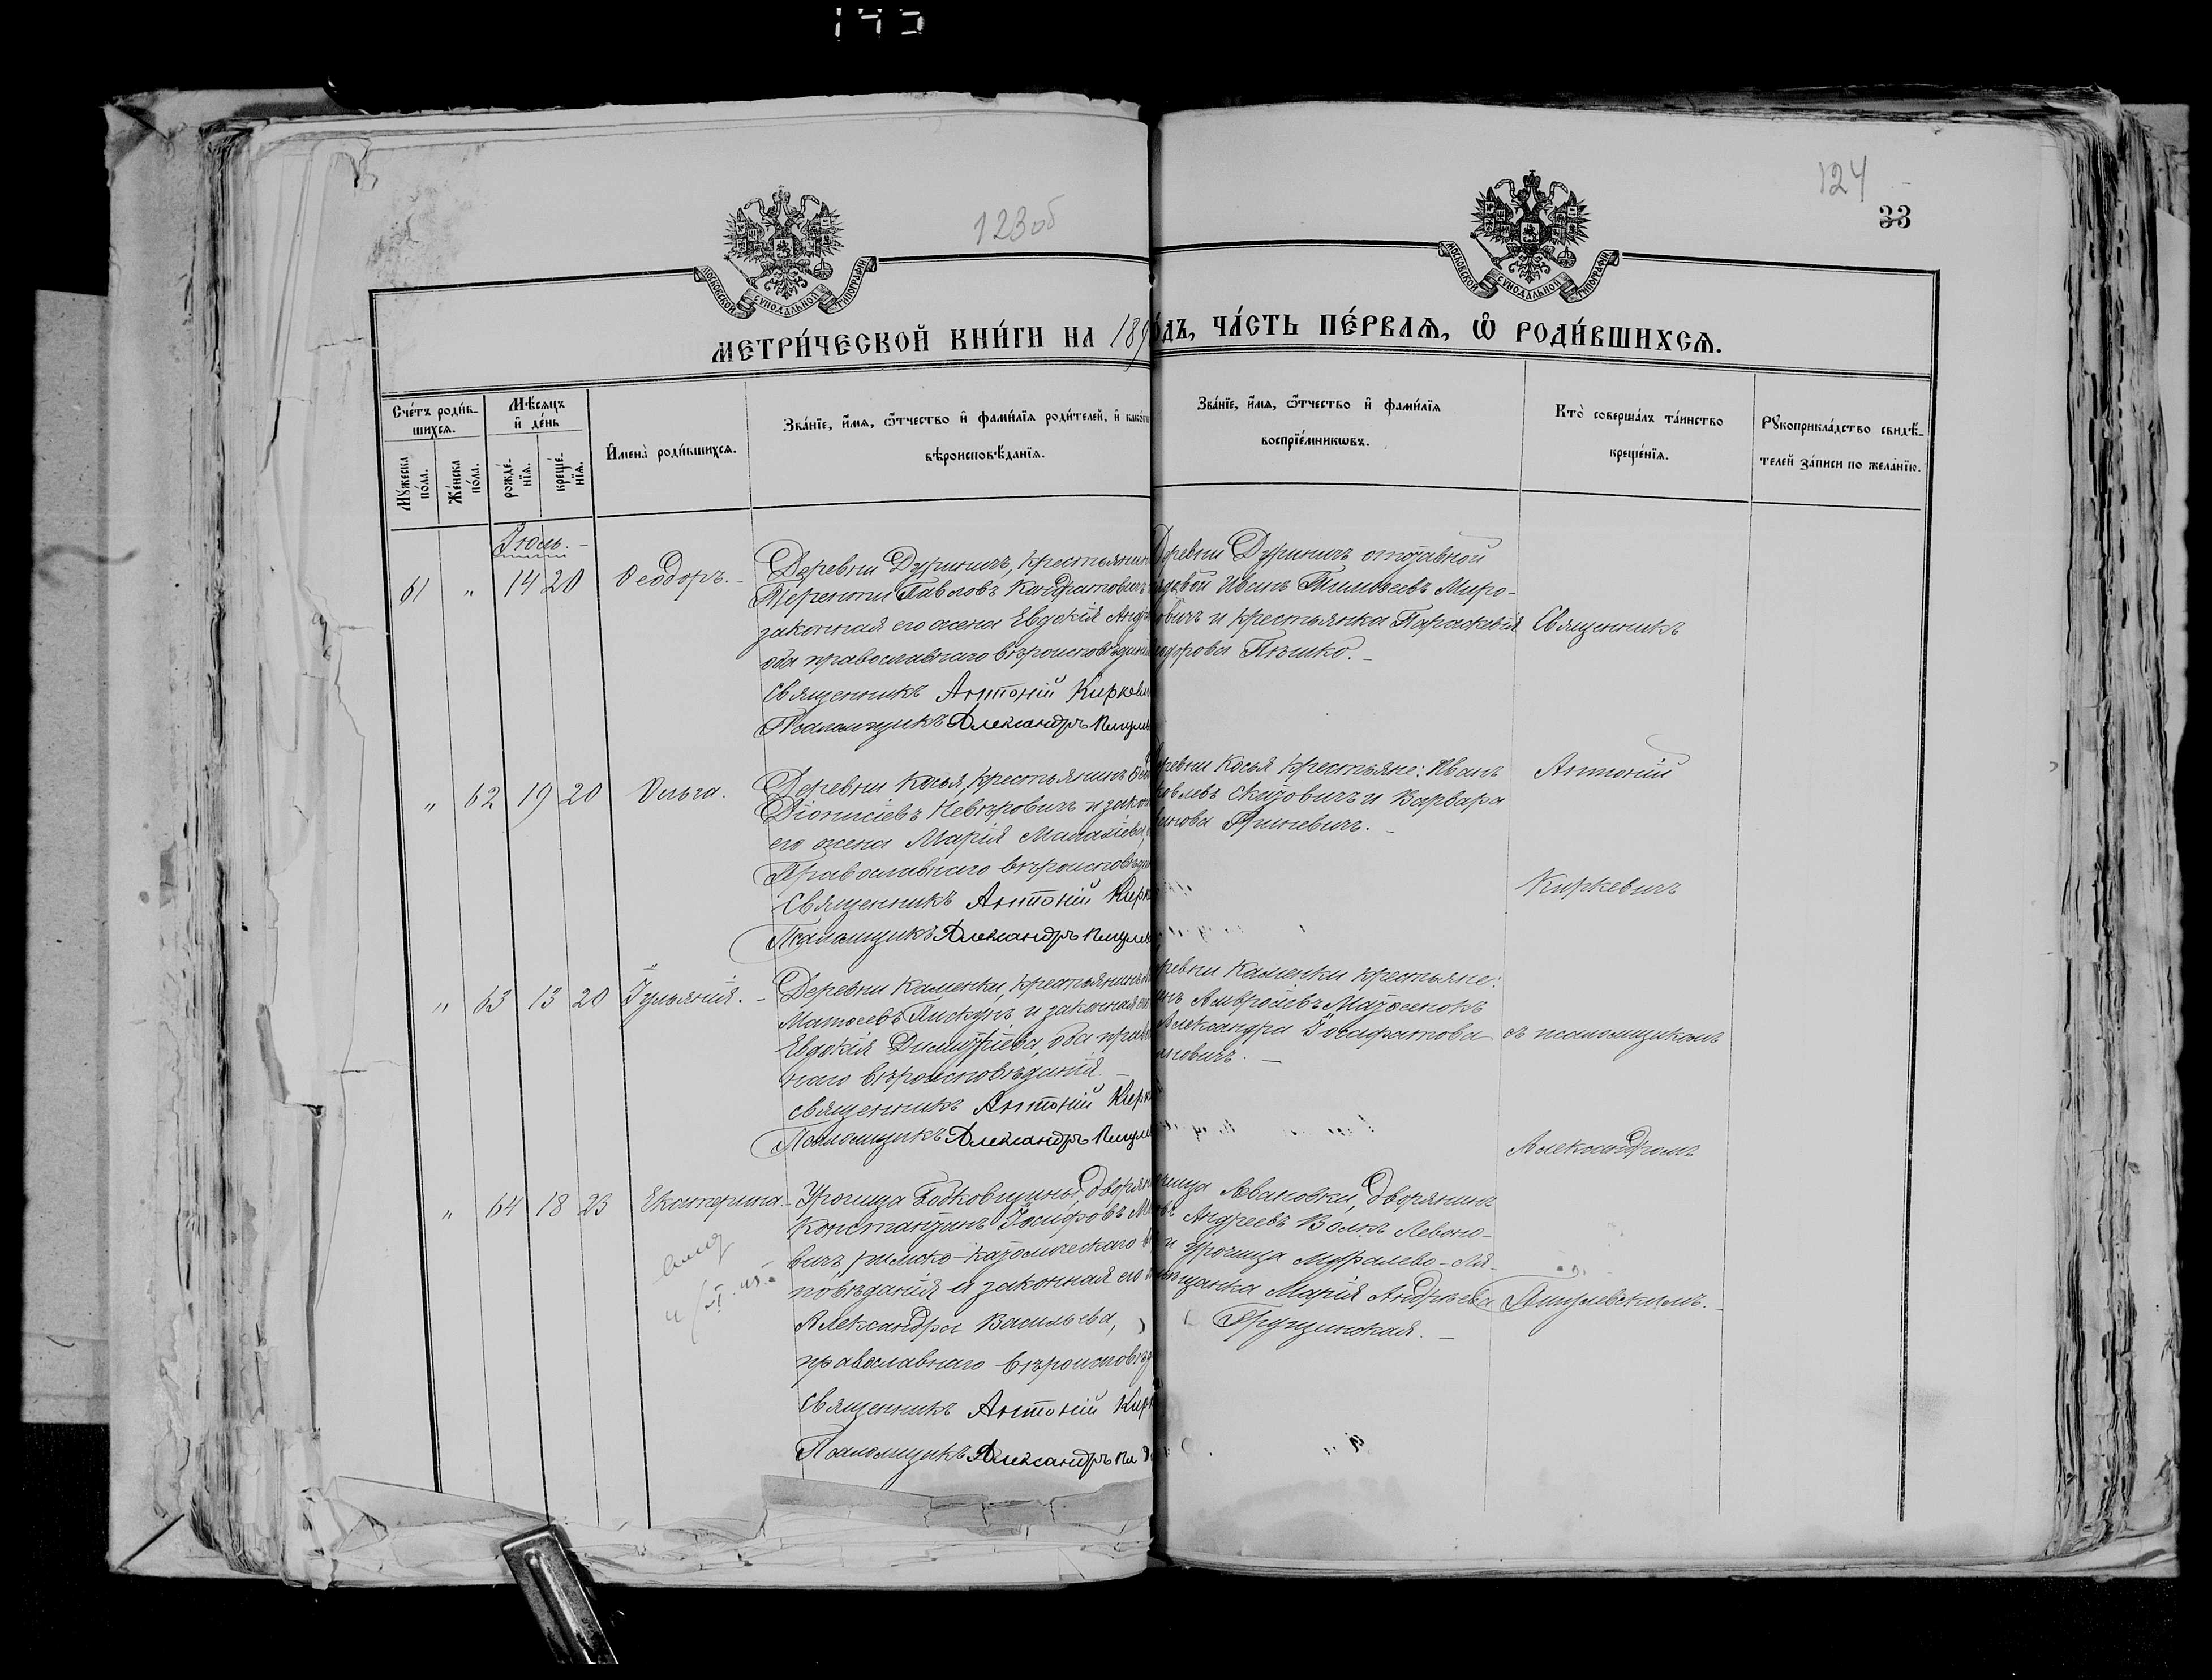 123об
124
33
МОСКОВСКОЙ СѴНОДАЛЬНОЙ ТИПОГРАФІИ
МОСКОВСКОЙ СѴНОДАЛЬНОЙ ТИПОГРАФІИ
МЕТРИ́ЧЕСКОЙ КНИ́ГИ НА 189
ОДЪ, ЧА́СТЬ ПЕ́РВАѦ, Ѿ РОДИ́ВШИХСѦ.
Сче́тъ роди́в-
шихсѧ.
Мꙋ́жеска
по́ла.
Же́нска
по́ла.
Мѣ́сѧцъ
и҆ де́нь
рожде́-
нїѧ.
креще́-
нїѧ.
И҆мена̀ роди́вшихсѧ.
Зва́нїе, и҆́мѧ, ѻ҆́тчество и҆ фами́лїѧ роди́телей, и҆ како́гѡ
вѣроисповѣ́данїѧ.
Зва́нїе, и҆́мѧ, ѻ҆́тчество и҆ фами́лїѧ
воспрїе́мникѡвъ.
Кто̀ соверша́лъ та́инство
креще́нїѧ.
Рꙋкоприкла́дство свидѣ́-
телей за́писи по жела́нїю.
Іюль.
61 " 14 20 Ѳеодоръ.
Деревни Дуриничъ, крестьянин
Терентій Павловъ Кондратовичъ
законная его жена Евдокія Анд
оба православнаго вѣроисповѣдан
Священникъ Антоній Киркеви
Псаломщикъ Александръ
Деревни Дуриничъ отставной
рядовой Иванъ Тимоѳеевъ Миро-
овичъ и крестьянка Параскевія
одорова Пѣшко.
Священникъ
" 62 19 20 Ольга.
Деревни Косья, крестьянинъ
Діонисіевъ Невѣровичъ и закон
его жена Марія Малахіева,
Православнаго вѣроисповѣдан
Священникъ Антоній Кирк
Псаломщикъ Александръ
ревни Косья крестьяне: Иванъ
ковлевъ Скитовичъ и Варвара
Гриневичъ.
Антоній
Киркевичъ
" 63 13 20 Іульянія.
Деревни Каменки, крестьянинъ
Матѳеевъ Пискунъ и законная
Евдокія Димитріева, оба право
наго вѣроисповѣданія.
Священникъ Антоній Кирк
Псаломщикъ Александръ
ревни Каменки крестьяне:
Амвросіевъ
Александра Іосафатова
новичъ.
съ псаломщикомъ
Александромъ
" 64 18 23 Екатерина.
Урочища дворян
Константинъ Іосифовъ
вичъ, римско-католическаго
повѣданія и законная его
Александра Васильева,
православнаго вѣроисповѣд
Священникъ Антоній Кирк
Псаломщикъ Александръ
чища Ивановки, дворянинъ
Андреевъ Волкъ Леоно-
и урочища
мѣщанка Марія Андреева
Грущинская.